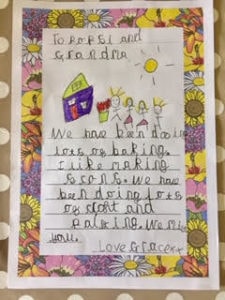 To Popsi and
Grandma
We have been doing
lots of baking.
I like making
Scons. We have
been doing lots
of and
We
you.
Love Grace xx